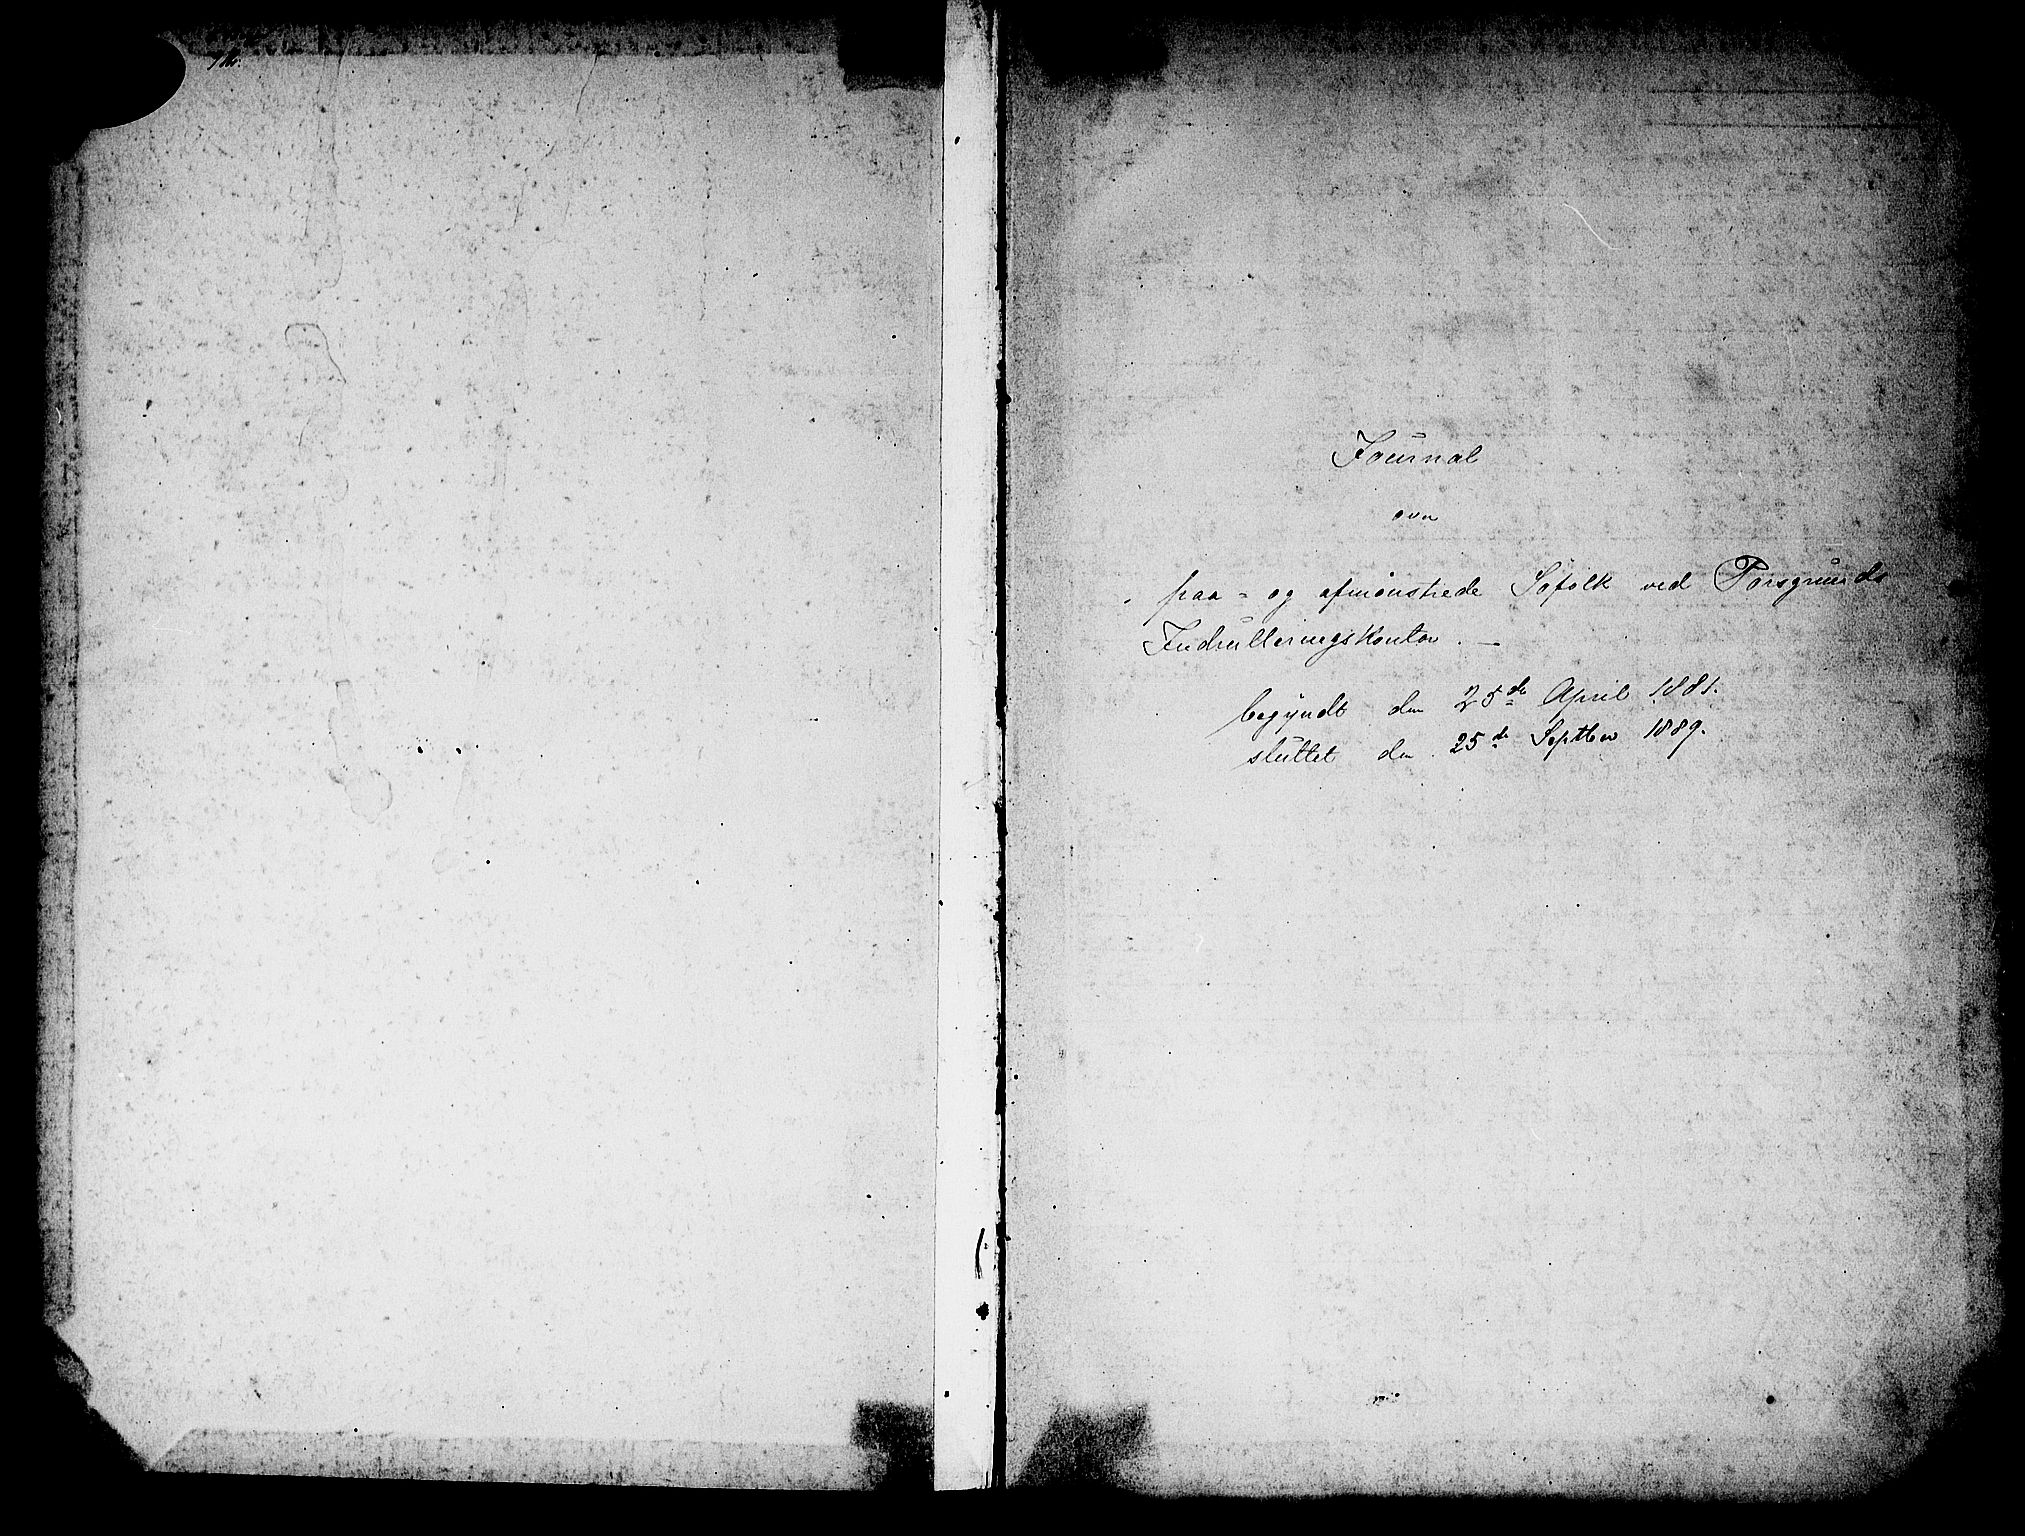 Journal
over
paa- og afmønstrede Søfolk ved Porsgrunds
Indrulleringskontor. —
begyndt den 25de April 1881.
sluttet den 25de Septber 1889.